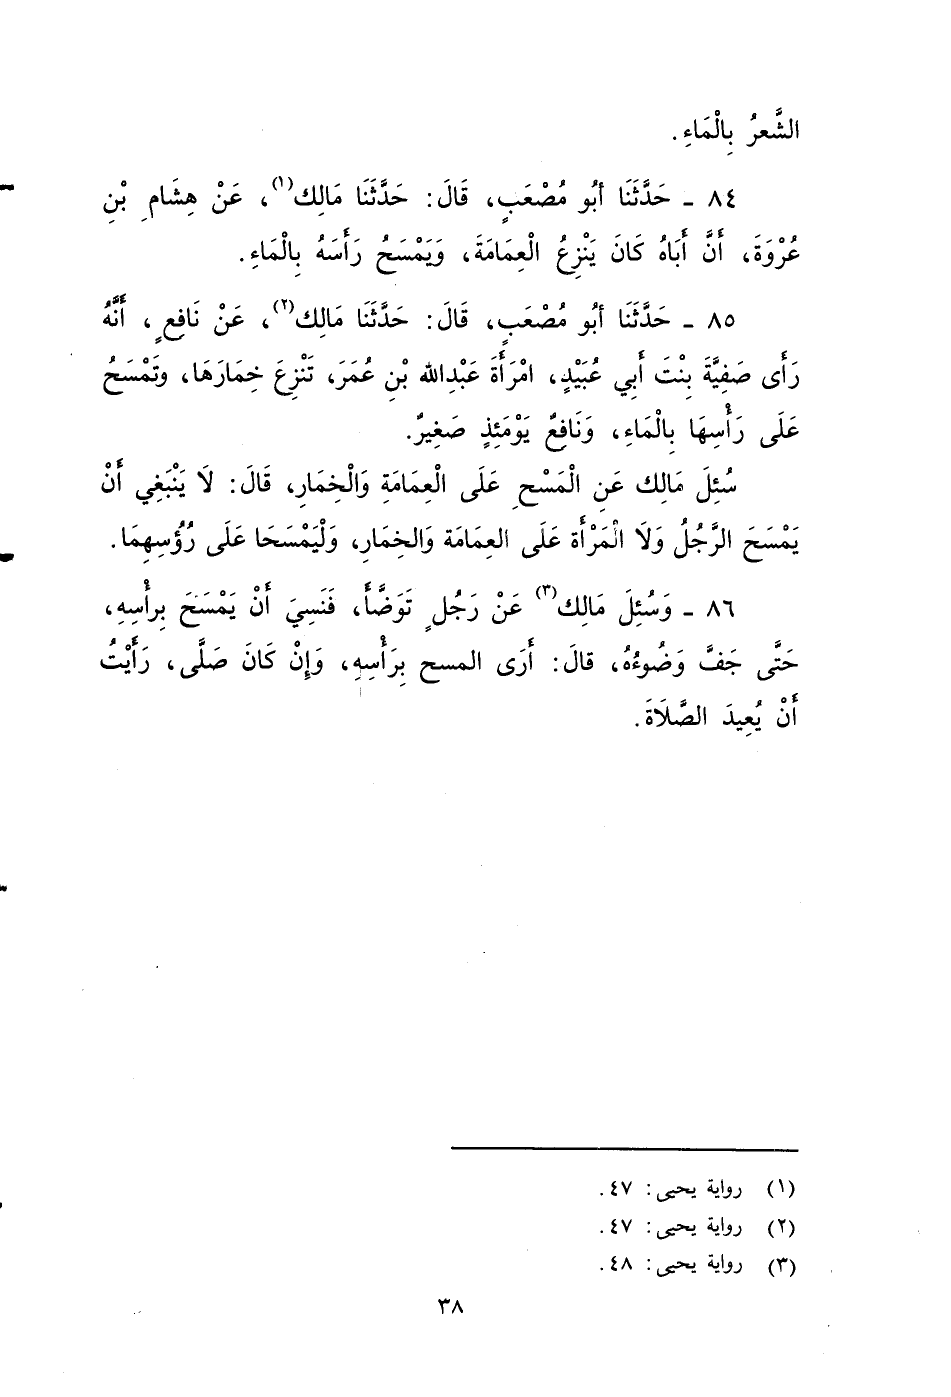 الشَّعرُ بِالْمَاءِ.
٨٤ ـ حَدَّثَنَا أبُو مُصْعَبٍ، قَالَ: حَدَّثَنَا مَالِك(١)، عَنْ هِشَامِ بْنِ
عُرْوَةَ، أَنَّ أَبَاهُ كَانَ يَنْزِعُ الْعِمَامَةَ، وَيَمْسَحُ رَأسَهُ بِالْمَاءِ.
٨٥ ـ حَدَّثَنَا أبُو مُصْعَبٍ، قَالَ: حَدَّثَنَا مَالِك(٢)، عَنْ نَافِعٍ، أَنَّهُ
رَأَى صَفِيَّةَ بِنْتَ أَبِي عُبَيْدٍ، امْرَأَةَ عَبْدِالله بْنِ عُمَرَ، تَنْزِعَ خِمَارَهَا، وتَمْسَحُ
عَلَى رَأْسِهَا بِالْمَاءِ، وَنَافِعٌ يَوْمَئِذٍ صَغِيرٌ.
سُئِلَ مَالِك عَنِ الْمَسْحِ عَلَى الْعِمَامَةِ وَالْخِمَارِ، قَالَ: لَا يَنْبَغِي أَنْ
يَمْسَحَ الرَّجُلُ وَلَا الْمَرْأَة عَلَى العِمَامَة وَالخِمَارِ، وَلْيَمْسَحَا عَلَى رُؤُسِهِمَا.
٨٦ ـ وَسُئِلَ مَالِك(٣) عَنْ رَجُلٍ تَوَضَّأَ، فَنَسِيَ أَنْ يَمْسَحَ بِرأْسِهِ،
حَتَّى جَفَّ وَضُوءُهُ، قالَ: أَرَى المسح بِرَأْسِهِ، وَإِنْ كَانَ صَلَّى، رَأَيْتُ
أَنْ يُعِيدَ الصَّلَاةَ.
(١) رواية يحيى: ٤٧.
(٢) رواية يحيى: ٤٧.
(٣) رواية يحيى: ٤٨.
٣٨